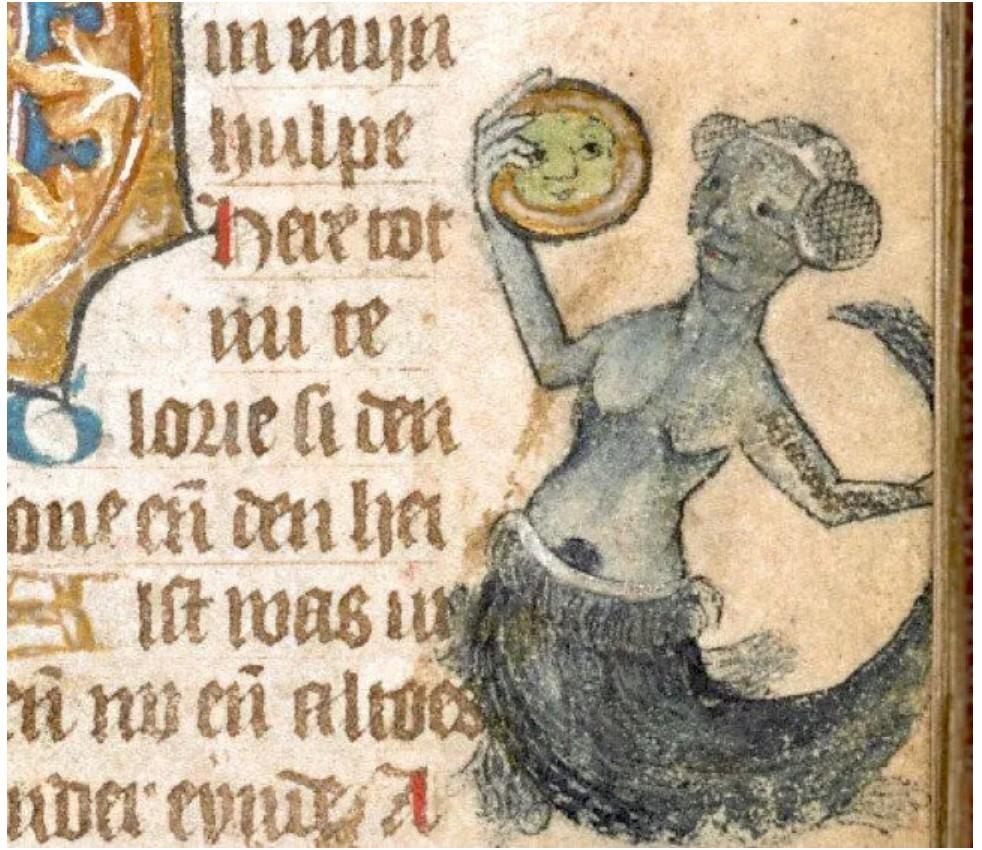 in mijn
hulpe
Here tot
mi te
lorie si den
one en̄ den hei
ist was in
en̄ nv en̄ altoes
nder eynde A